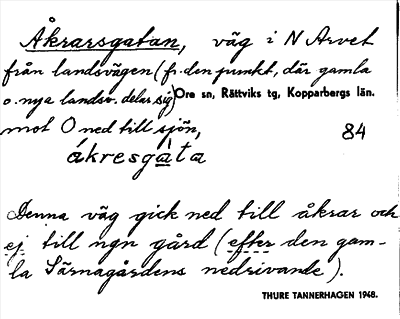 Åkrarsgatan, väg i N Arvet
från landsvägen (fr. den punkt, där gamla
o. nya landsv. delar sig) Ore sn, Rättviks tg, Kopparbergs län.
mot O ned till sjön, 84
åkresgàta
Denna väg gick ned till åkrar och
ej till ngn gård (efter den gam-
la Särnagårdens nedrivande).
THURE TANNERHAGEN 1948.